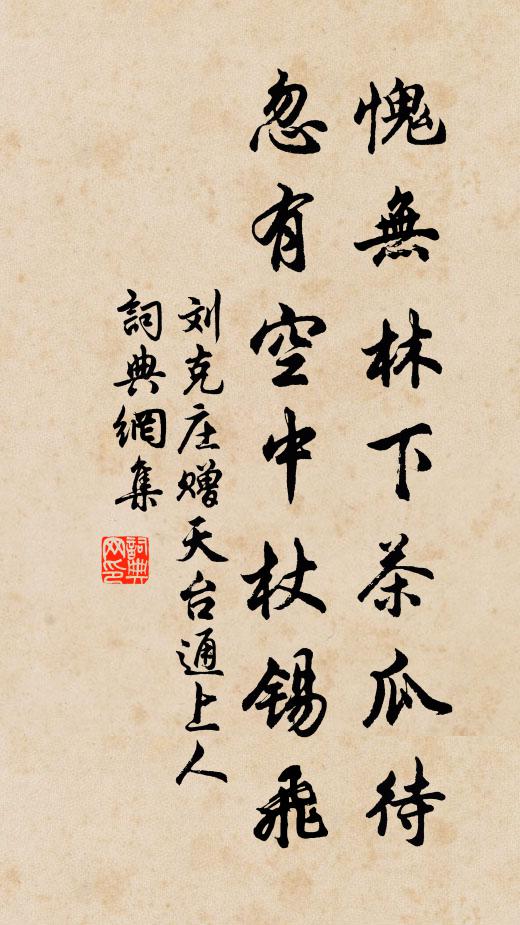 愧無林下茶瓜待
忽有空中杖锡飛
刘克庄赠天台通上人
詞典網集
詞典
网印